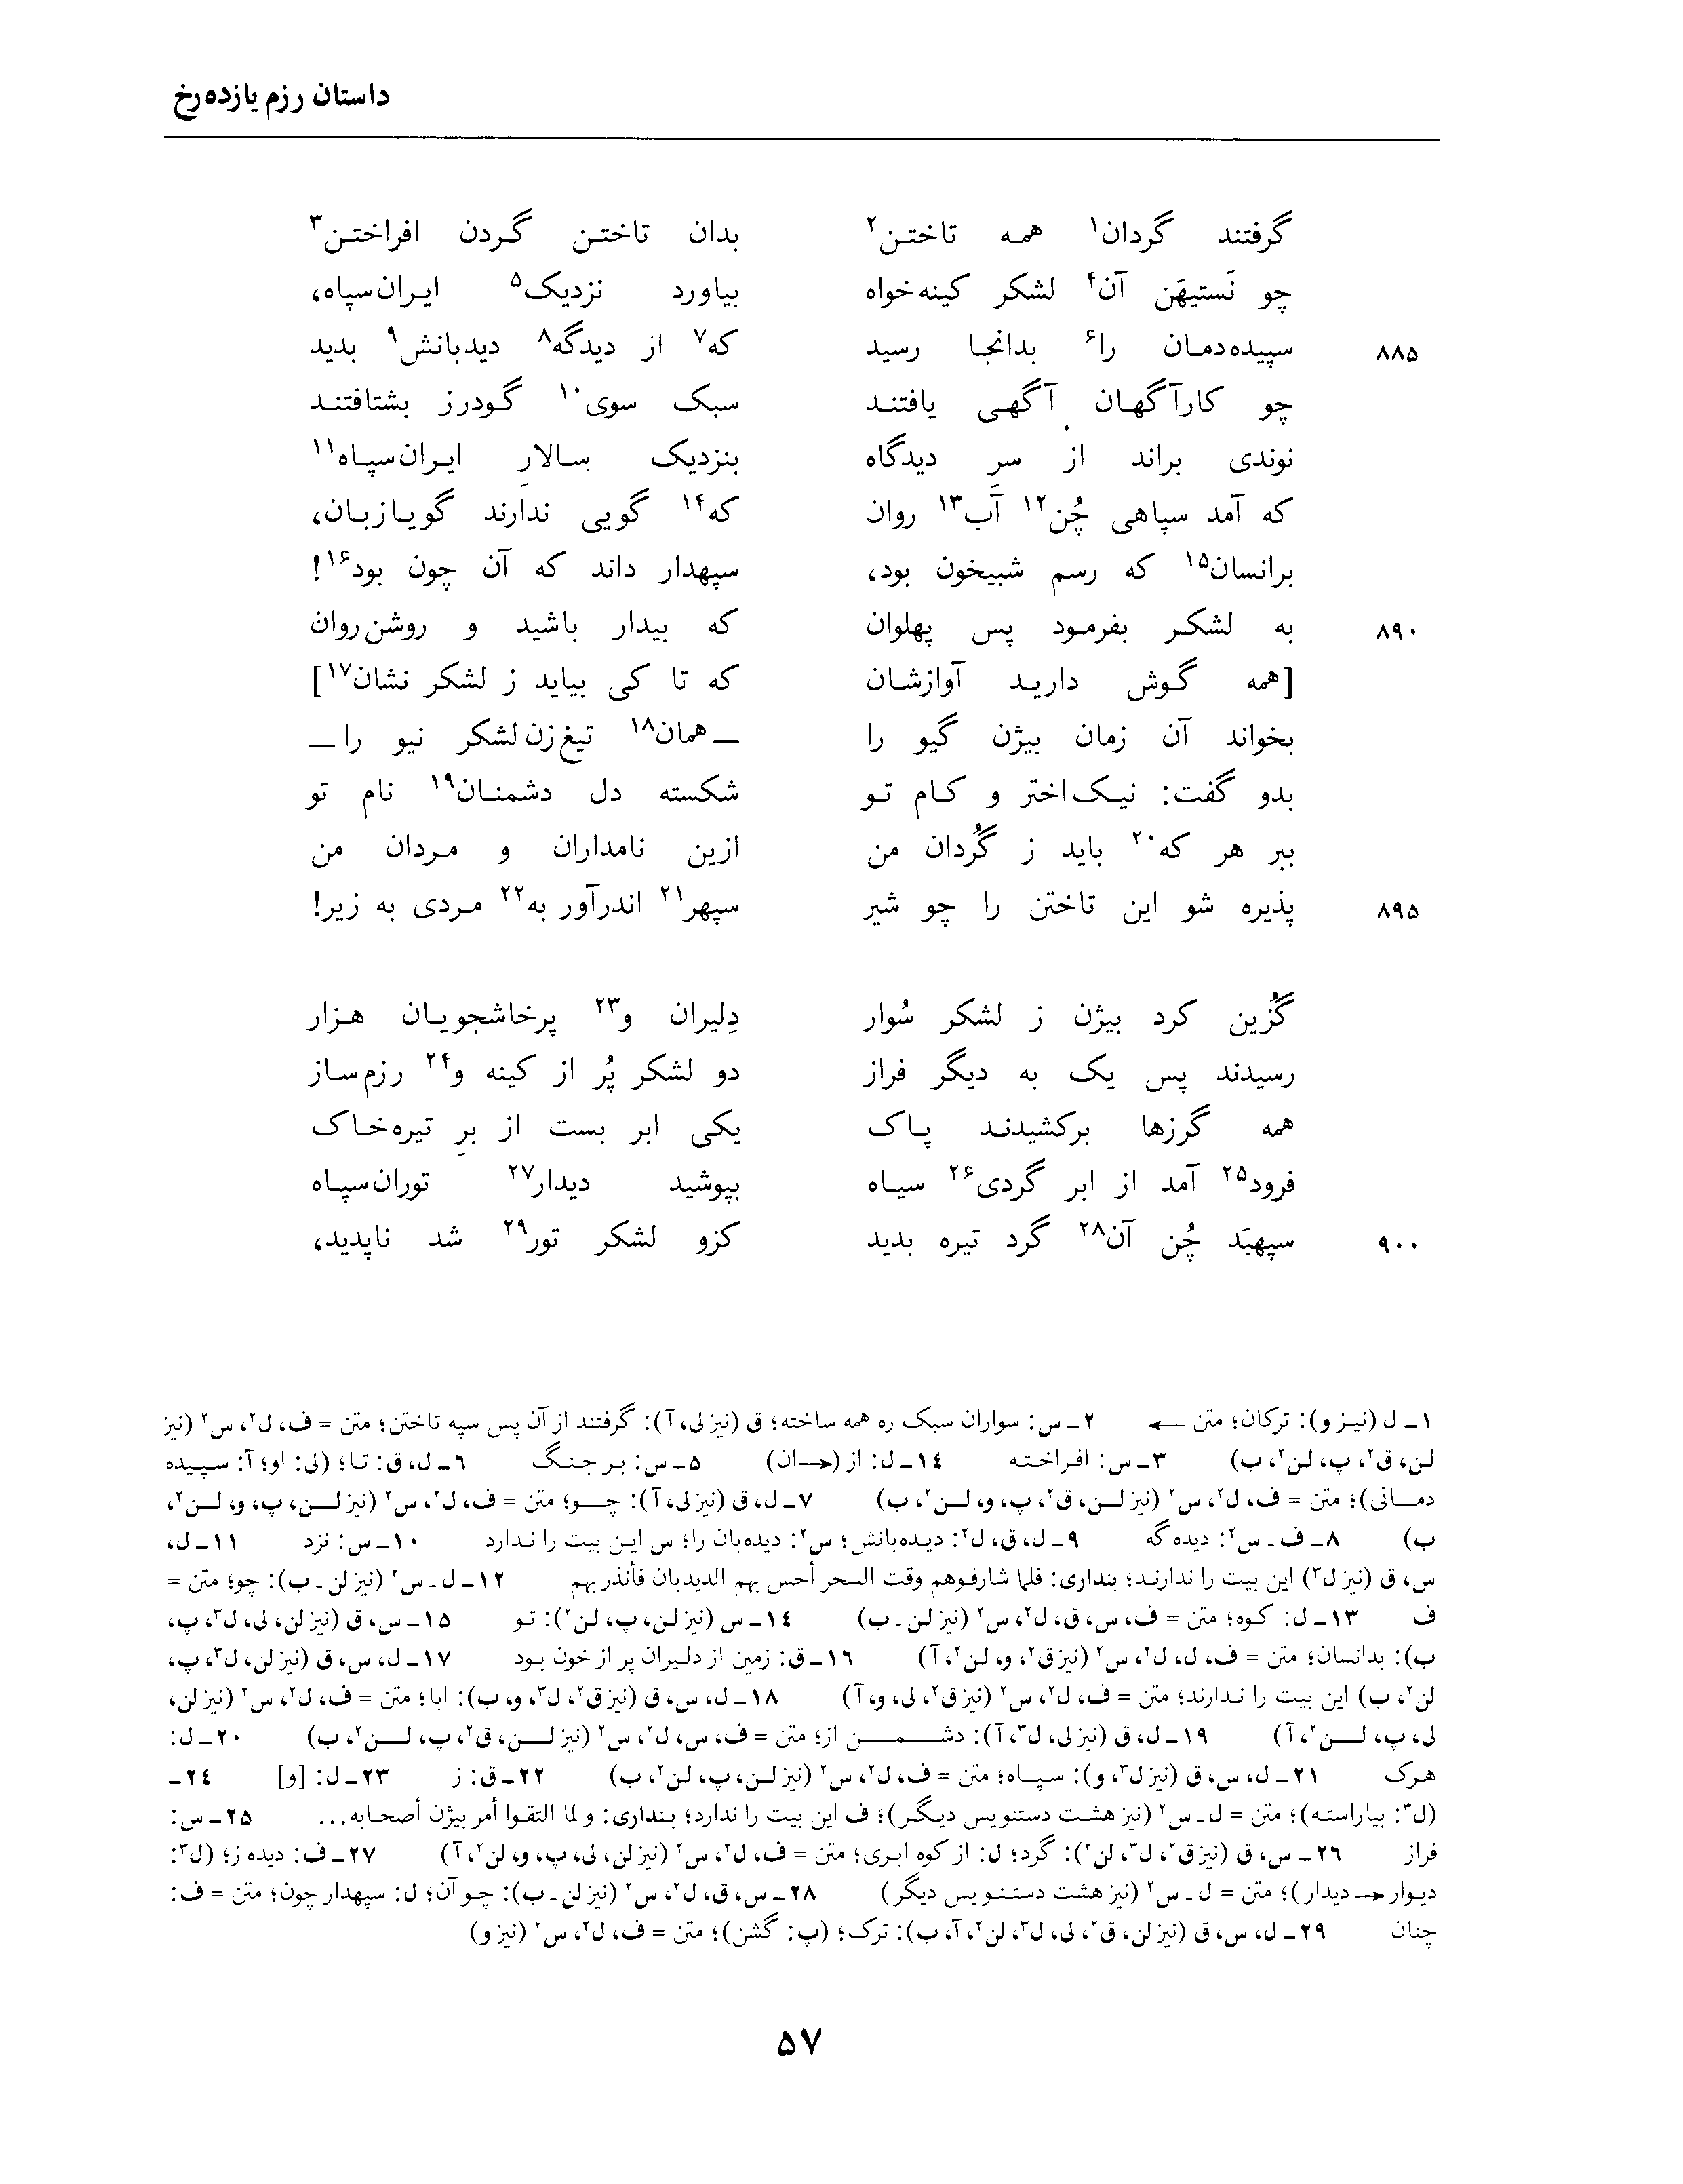 داستان رزم یازده‌رخ
گرفتند گردان۱ همه تاختن۲ بدان تاختن گردن افراختن۳
چو نَستیهَن آن۴ لشکر کینه‌خواه بیاورد نزدیک۵ ایران‌سپاه،
۸۸۵ سپیده‌دمان را۶ بدانجا رسید که۷ از دیدگه۸ دیدبانش۹ بدید
چو کارآگهان آگهی یافتند سبک سوی۱۰ گودرز بشتافتند
نوندی براند از سرِ دیدگاه بنزدیک سالارِ ایران‌سپاه۱۱
که آمد سپاهی چُن۱۲ آب۱۳ روان که۱۴ گویی ندارند گویازبان،
برانسان۱۵ که رسم شبیخون بود، سپهدار داند که آن چون بود۱۶!
۸۹۰ به لشکر بفرمود پس پهلوان که بیدار باشید و روشن‌روان
[همه گوش دارید آوازشان که تا کی بیاید ز لشکر نشان۱۷]
بخواند آن زمان بیژن گیو را ــ همان۱۸ تیغ‌زن لشکر نیو را ــ
بدو گفت: نیک‌اختر و کام تو شکسته دل دشمنان۱۹ نام تو
ببر هر که۲۰ باید ز گُردان من ازین نامداران و مردان من
۸۹۵ پذیره شو این تاختن را چو شیر سپهر۲۱ اندرآور به۲۲ مردی به زیر!
گُزین کرد بیژن ز لشکر سُوار دِلیران و۲۳ پرخاشجویان هزار
رسیدند پس یک به دیگر فراز دو لشکر پُر از کینه و۲۴ رزم‌ساز
همه گرزها برکشیدند پاک یکی ابر بست از برِ تیره‌خاک
فرود۲۵ آمد از ابر گردی۲۶ سیاه بپوشید دیدار۲۷ توران‌سپاه
۹۰۰ سپهبَد چُن آن۲۸ گرد تیره بدید کزو لشکر تور۲۹ شد ناپدید،
۱ـ ل (نیز و): ترکان؛ متن ← ۲ـ س: سواران سبک ره همه ساخته؛ ق (نیز لی، آ): گرفتند از آن پس سپه تاختن؛ متن = ف، ل۲، س۲ (نیز
لن، ق۲، پ، لن۲، ب) ۳ـ س: افراخته ۱۴ـ ل: از (→ان) ۵ـ س: بر جنگ ۶ـ ل، ق: تا؛ (لی: او؛ آ: سپیده
دمانی)؛ متن = ف، ل۲، س۲ (نیز لن، ق۲، پ، و، لن۲، ب) ۷ـ ل، ق (نیز لی، آ): چو؛ متن = ف، ل۲، س۲ (نیز لن، پ، و، لن۲،
ب) ۸ـ ف ـ س۲: دیده گه ۹ـ ل، ق، ل۲: دیده‌بانش؛ س۲: دیده‌بان را؛ س این بیت را ندارد ۱۰ـ س: نزد ۱۱ـ ل،
س، ق (نیز ل۳) این بیت را ندارند؛ بنداری: فلما شارفوهم وقت السحر أحس بهم الدیدبان فأنذر بهم ۱۲ـ ل ـ س۲ (نیز لن ـ ب): چو؛ متن =
ف ۱۳ـ ل: کوه؛ متن = ف، س، ق، ل۲، س۲ (نیز لن ـ ب) ۱۴ـ س (نیز لن، پ، لن۲): تو ۱۵ـ س، ق (نیز لن، لی، ل۳، پ،
ب): بدانسان؛ متن = ف، ل، ل۲، س۲ (نیز ق۲، و، لن۲، آ) ۱۶ـ ق: زمین از دلیران پر از خون بود ۱۷ـ ل، س، ق (نیز لن، ل۳، پ،
لن۲، ب) این بیت را ندارند؛ متن = ف، ل۲، س۲ (نیز ق۲، لی، و، آ) ۱۸ـ ل، س، ق (نیز ق۲، ل۳، و، ب): ابا؛ متن = ف، ل۲، س۲ (نیز لن،
لی، پ، لن۲، آ) ۱۹ـ ل، ق (نیز لی، ل۳، آ): دشمن از؛ متن = ف، س، ل۲، س۲ (نیز لن، ق۲، پ، لن۲، ب) ۲۰ـ ل:
هرک ۲۱ـ ل، س، ق (نیز ل۳، و): سپاه؛ متن = ف، ل۲، س۲ (نیز لن، پ، لن۲، ب) ۲۲ـ ق: ز ۲۳ـ ل: [و] ۲۴ـ
(ل۳: بیاراسته)؛ متن = ل ـ س۲ (نیز هشت دستنویس دیگر)؛ ف این بیت را ندارد؛ بنداری: و لما التقوا أمر بیژن أصحابه... ۲۵ـ س:
فراز ۲۶ـ س، ق (نیز ق۲، ل۳، لن۲): گرد؛ ل: از کوه ابری؛ متن = ف، ل۲، س۲ (نیز لن، لی، پ، و، لن۲، آ) ۲۷ـ ف: دیده ز؛ (ل۳:
دیوار→دیدار)؛ متن = ل ـ س۲ (نیز هشت دستنویس دیگر) ۲۸ـ س، ق، ل۲، س۲ (نیز لن ـ ب): چو آن؛ ل: سپهدار چون؛ متن = ف:
چنان ۲۹ـ ل، س، ق (نیز لن، ق۲، لی، ل۳، لن۲، آ، ب): ترک؛ (پ: گشن)؛ متن = ف، ل۲، س۲ (نیز و)
۵۷